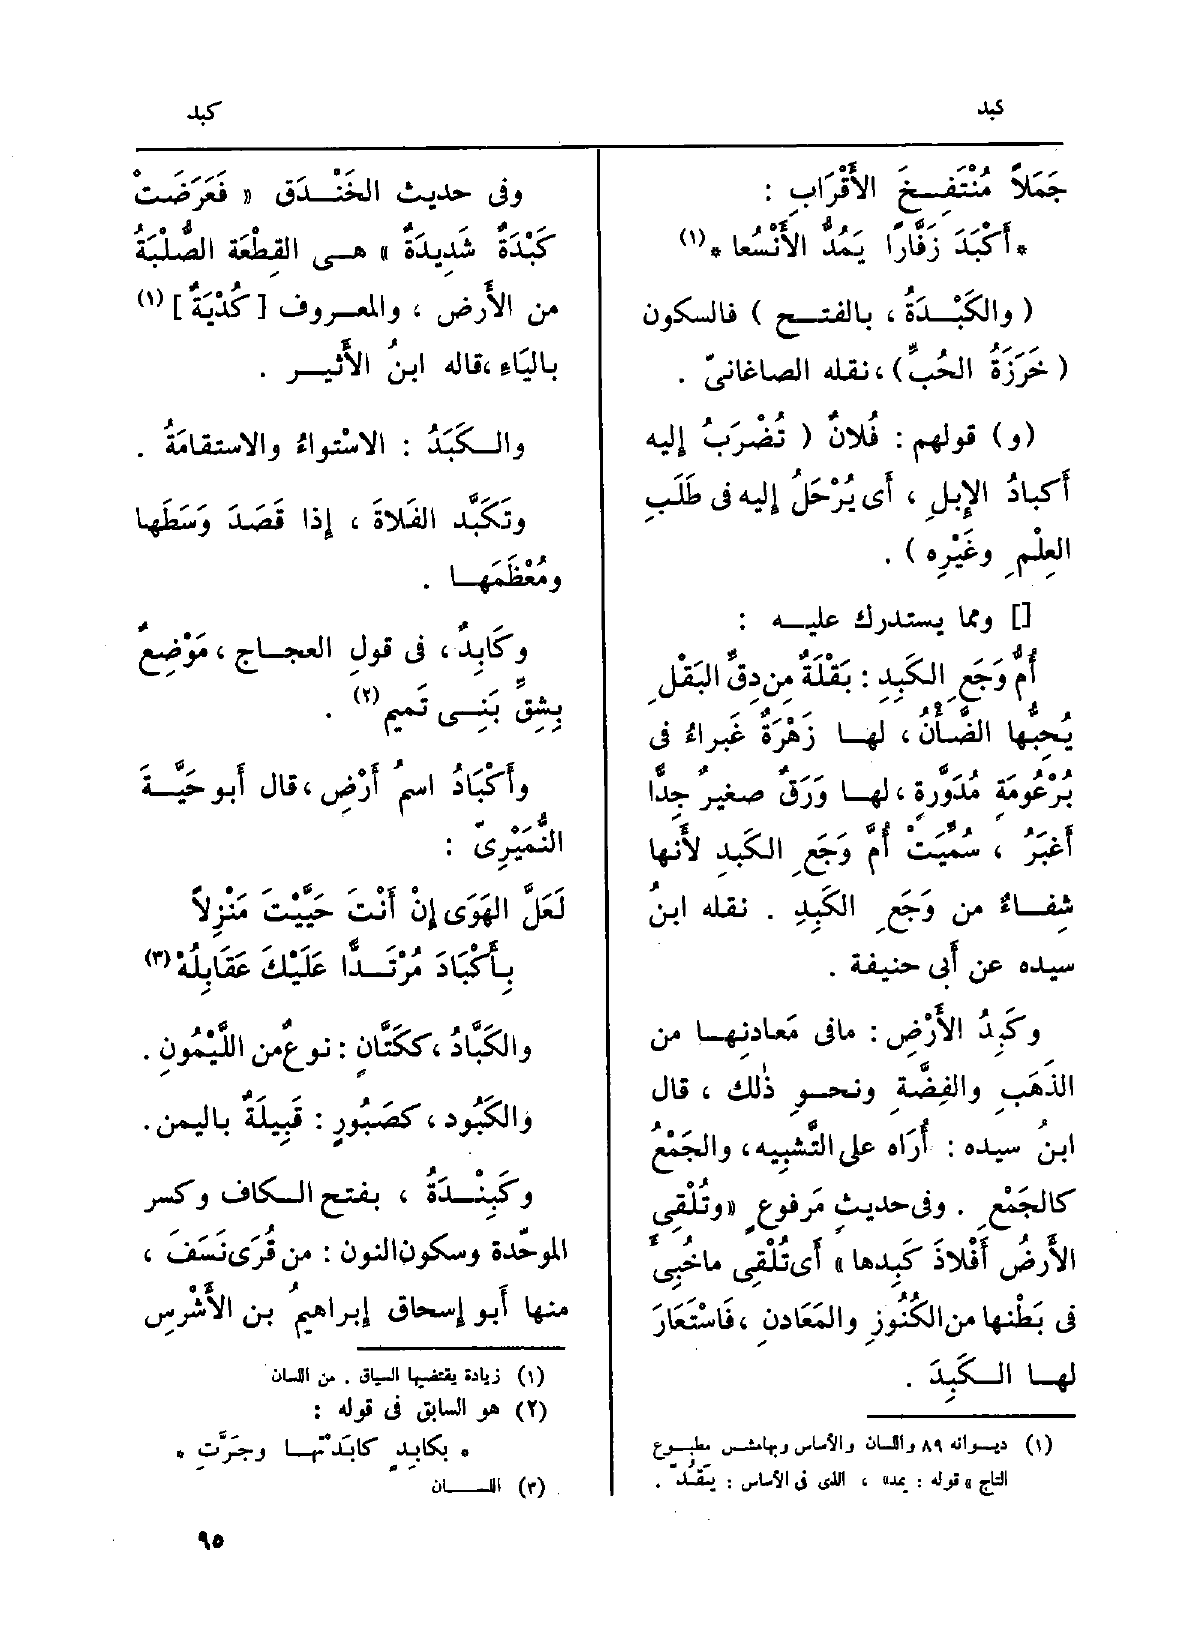 كبد
كبد
جَمَلاً مُنْتَفِخَ الأَقْرَابِ :
* أَكْبَدَ زَفَّارًا يَمُدُّ الأَنْسُعا * (١)
( والكَبْدَةُ ، بالفتح ) فالسكون
( خَرَزَةُ الحُبِّ ) ، نقله الصاغانىّ .
(و) قولهم : فُلانٌ ( تُضْرَبُ إليه
أَكبادُ الإِبلِ ، أَى يُرْحَلُ إليه فى طَلَبِ
العِلْمِ وغَيْرِه ) .
[] ومما يستدرك عليه :
أُمُّ وَجَعِ الكَبِدِ : بَقْلَةٌ مِن دِقِّ البَقْلِ
يُحِبُّها الضَّأْنُ ، لها زَهْرَةٌ غَبراءُ فى
بُرْعُومَةٍ مُدَوَّرةٍ ، لها وَرَقٌ صغيرٌ جِدًّا
أَغبَرُ ، سُمِّيَتْ أُمَّ وَجَعِ الكَبدِ لأَنها
شِفاءٌ من وَجَعِ الكَبِدِ . نقله ابنُ
سيده عن أَبى حنيفة .
وكَبِدُ الأَرْضِ : مافى مَعادنِها من
الذَهَبِ والفِضَّةِ ونحوِ ذٰلك ، قال
ابنُ سيده : أُرَاه على التَّشبِيه ، والجَمْعُ
كالجَمْعِ . وفى حديثٍ مَرفوعٍ «وتُلْقِى
الأَرضُ أَفْلاذَ كَبِدها» أَى تُلْقِى ماخُبِئَ
فى بَطْنِها من الكُنُوزِ والمَعَادنِ ، فَاسْتَعَارَ
لها الكَبِدَ .
(١) ديوانه ٨٩ واللسان والأساس وبهامش مطبوع
التاج «قوله : يمد» ، الذى فى الأساس : يَقُدّ .
وفى حديث الخَنْدَق « فَعَرَضَتْ
كَبْدَةٌ شَدِيدَةٌ » هى القِطْعَة الصُّلْبَةُ
من الأَرض ، والمعروف [كُدْيَةٌ] (١)
باليَاءِ ، قاله ابنُ الأَثير .
والكَبَدُ : الاسْتِواءُ والاستقامَةُ .
وتَكَبَّد الفَلاةَ ، إذا قَصَدَ وَسَطَها
ومُعْظَمَها .
وكَابِدٌ ، فى قولِ العجاج ، مَوْضِعٌ
بِشِقِّ بَنِى تَميم (٢) .
وأَكْبَادُ اسمُ أَرْضٍ ، قال أَبو حَيَّةَ
النُّمَيْرِىّ :
لَعَلَّ الهَوَى إِنْ أَنْتَ حَيَّيْتَ مَنْزِلاً
بِأَكْبَادَ مُرْتَدًّا عَلَيْكَ عَقَابِلُهْ (٣)
والكَبَّادُ ، ككَتَّانٍ : نوعٌ من اللَّيْمُونِ .
والكَبُود ، كصَبُورٍ : قَبِيلَةٌ باليمن .
وكَبِنْدَةُ ، بفتح الكاف وكسر
الموحّدة وسكون النون : من قُرَى نَسَفَ ،
منها أَبو إِسحاق إِبراهيمُ بن الأَشْرسِ
(١) زيادة يقتضيها السياق . من اللسان
(٢) هو السابق فى قوله :
* بكابدٍ كابَدْتُها وجَرَّتِ *
(٣) اللسان
٩٥